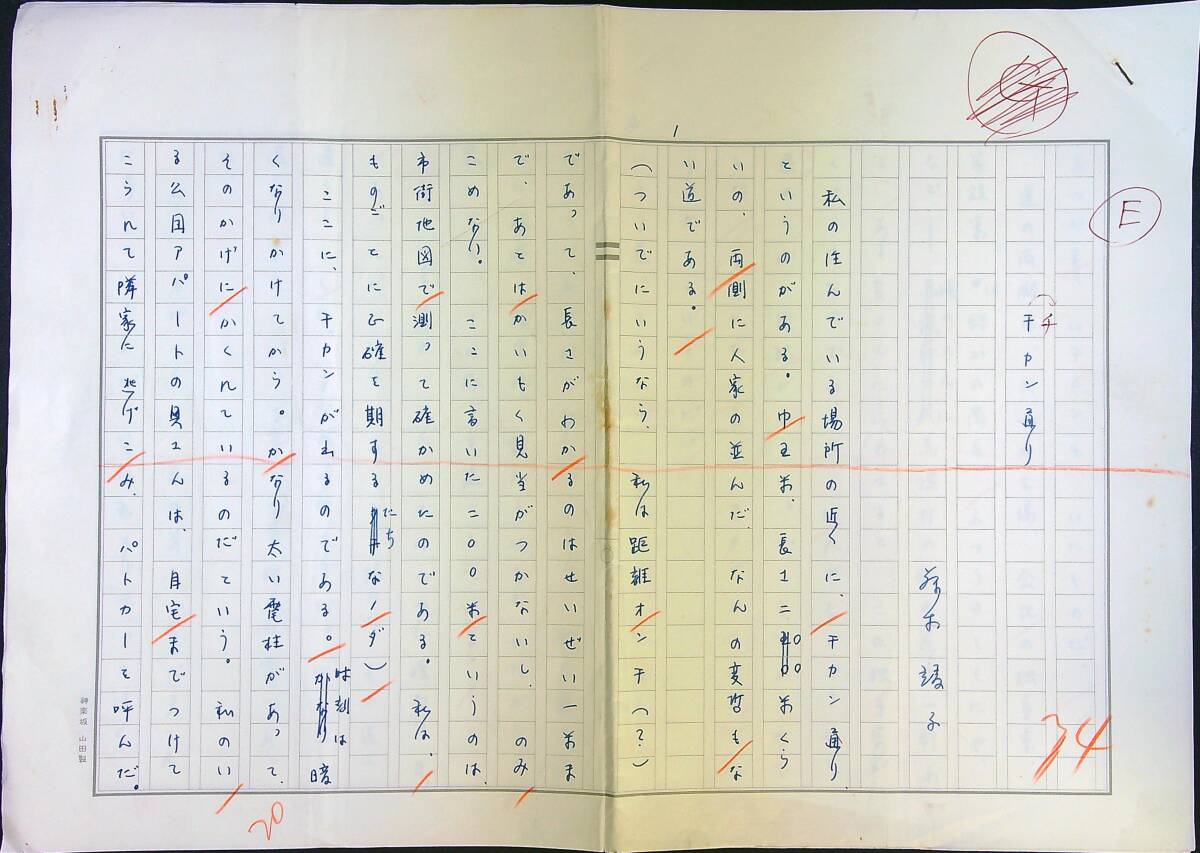 E
1
チカン通り
チ
子
34
私の住んでいる場所の近くに、チカン通り
というのがある。巾五米、長さ二〇〇米くら
いの、両側に人家の並んだ、なんの変哲もな
い道である。
(ついでにいうなら、私は距離オンチ(?)
であって、長さがわかるのはせいぜい一米ま
で、あとはかいもく見当がつかないし、のみ
こめない。ここに書いた二〇〇米というのは、
市街地図で測って確かめたのである。私は、
ものごとに正確を期するたちなノダ)
ここに、チカンが出るのである。時刻は暗
くなりかけてから。かなり太い電柱があって、
そのかげにかくれているのだという。私のい
る公団アパートの奥さんは、自宅までつけて
こられて隣家に逃げこみ、パトカーを呼んだ。
20
神楽坂 山田製